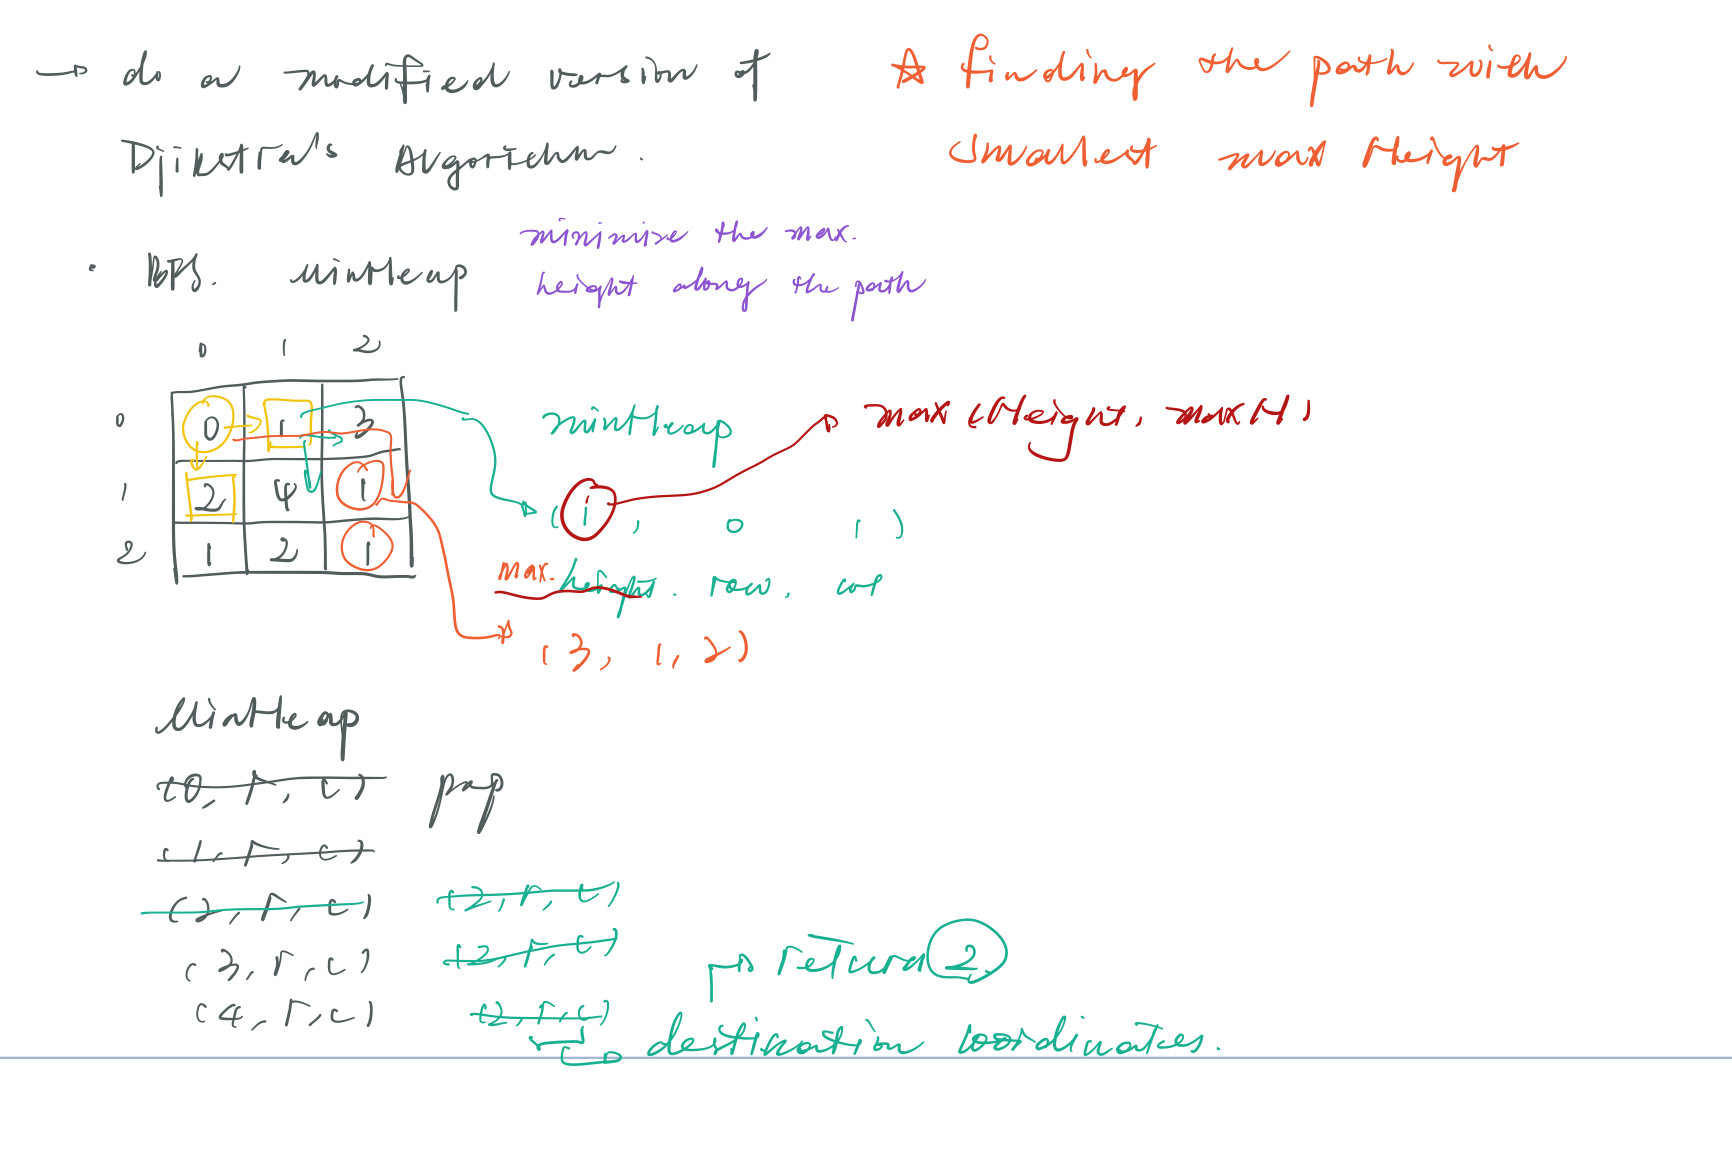 → do a modified version of
Djikstra's Algorithm.
☆ finding the path with
smallest max Height
• BFS. minHeap
minimise the max.
height along the path
0 1 2
0 0 1 3
1 2 4 1
2 1 2 1
minHeap
max (Height, maxH)
(1, 0 1)
max. height. row, col
(3, 1, 2)
MinHeap
(0, r, c) pop
(1, r, c)
(2, r, c) (2, r, c)
(3, r, c) (2, r, c)
(4, r, c) (2, r, c)
→ return 2
destination coordinates.